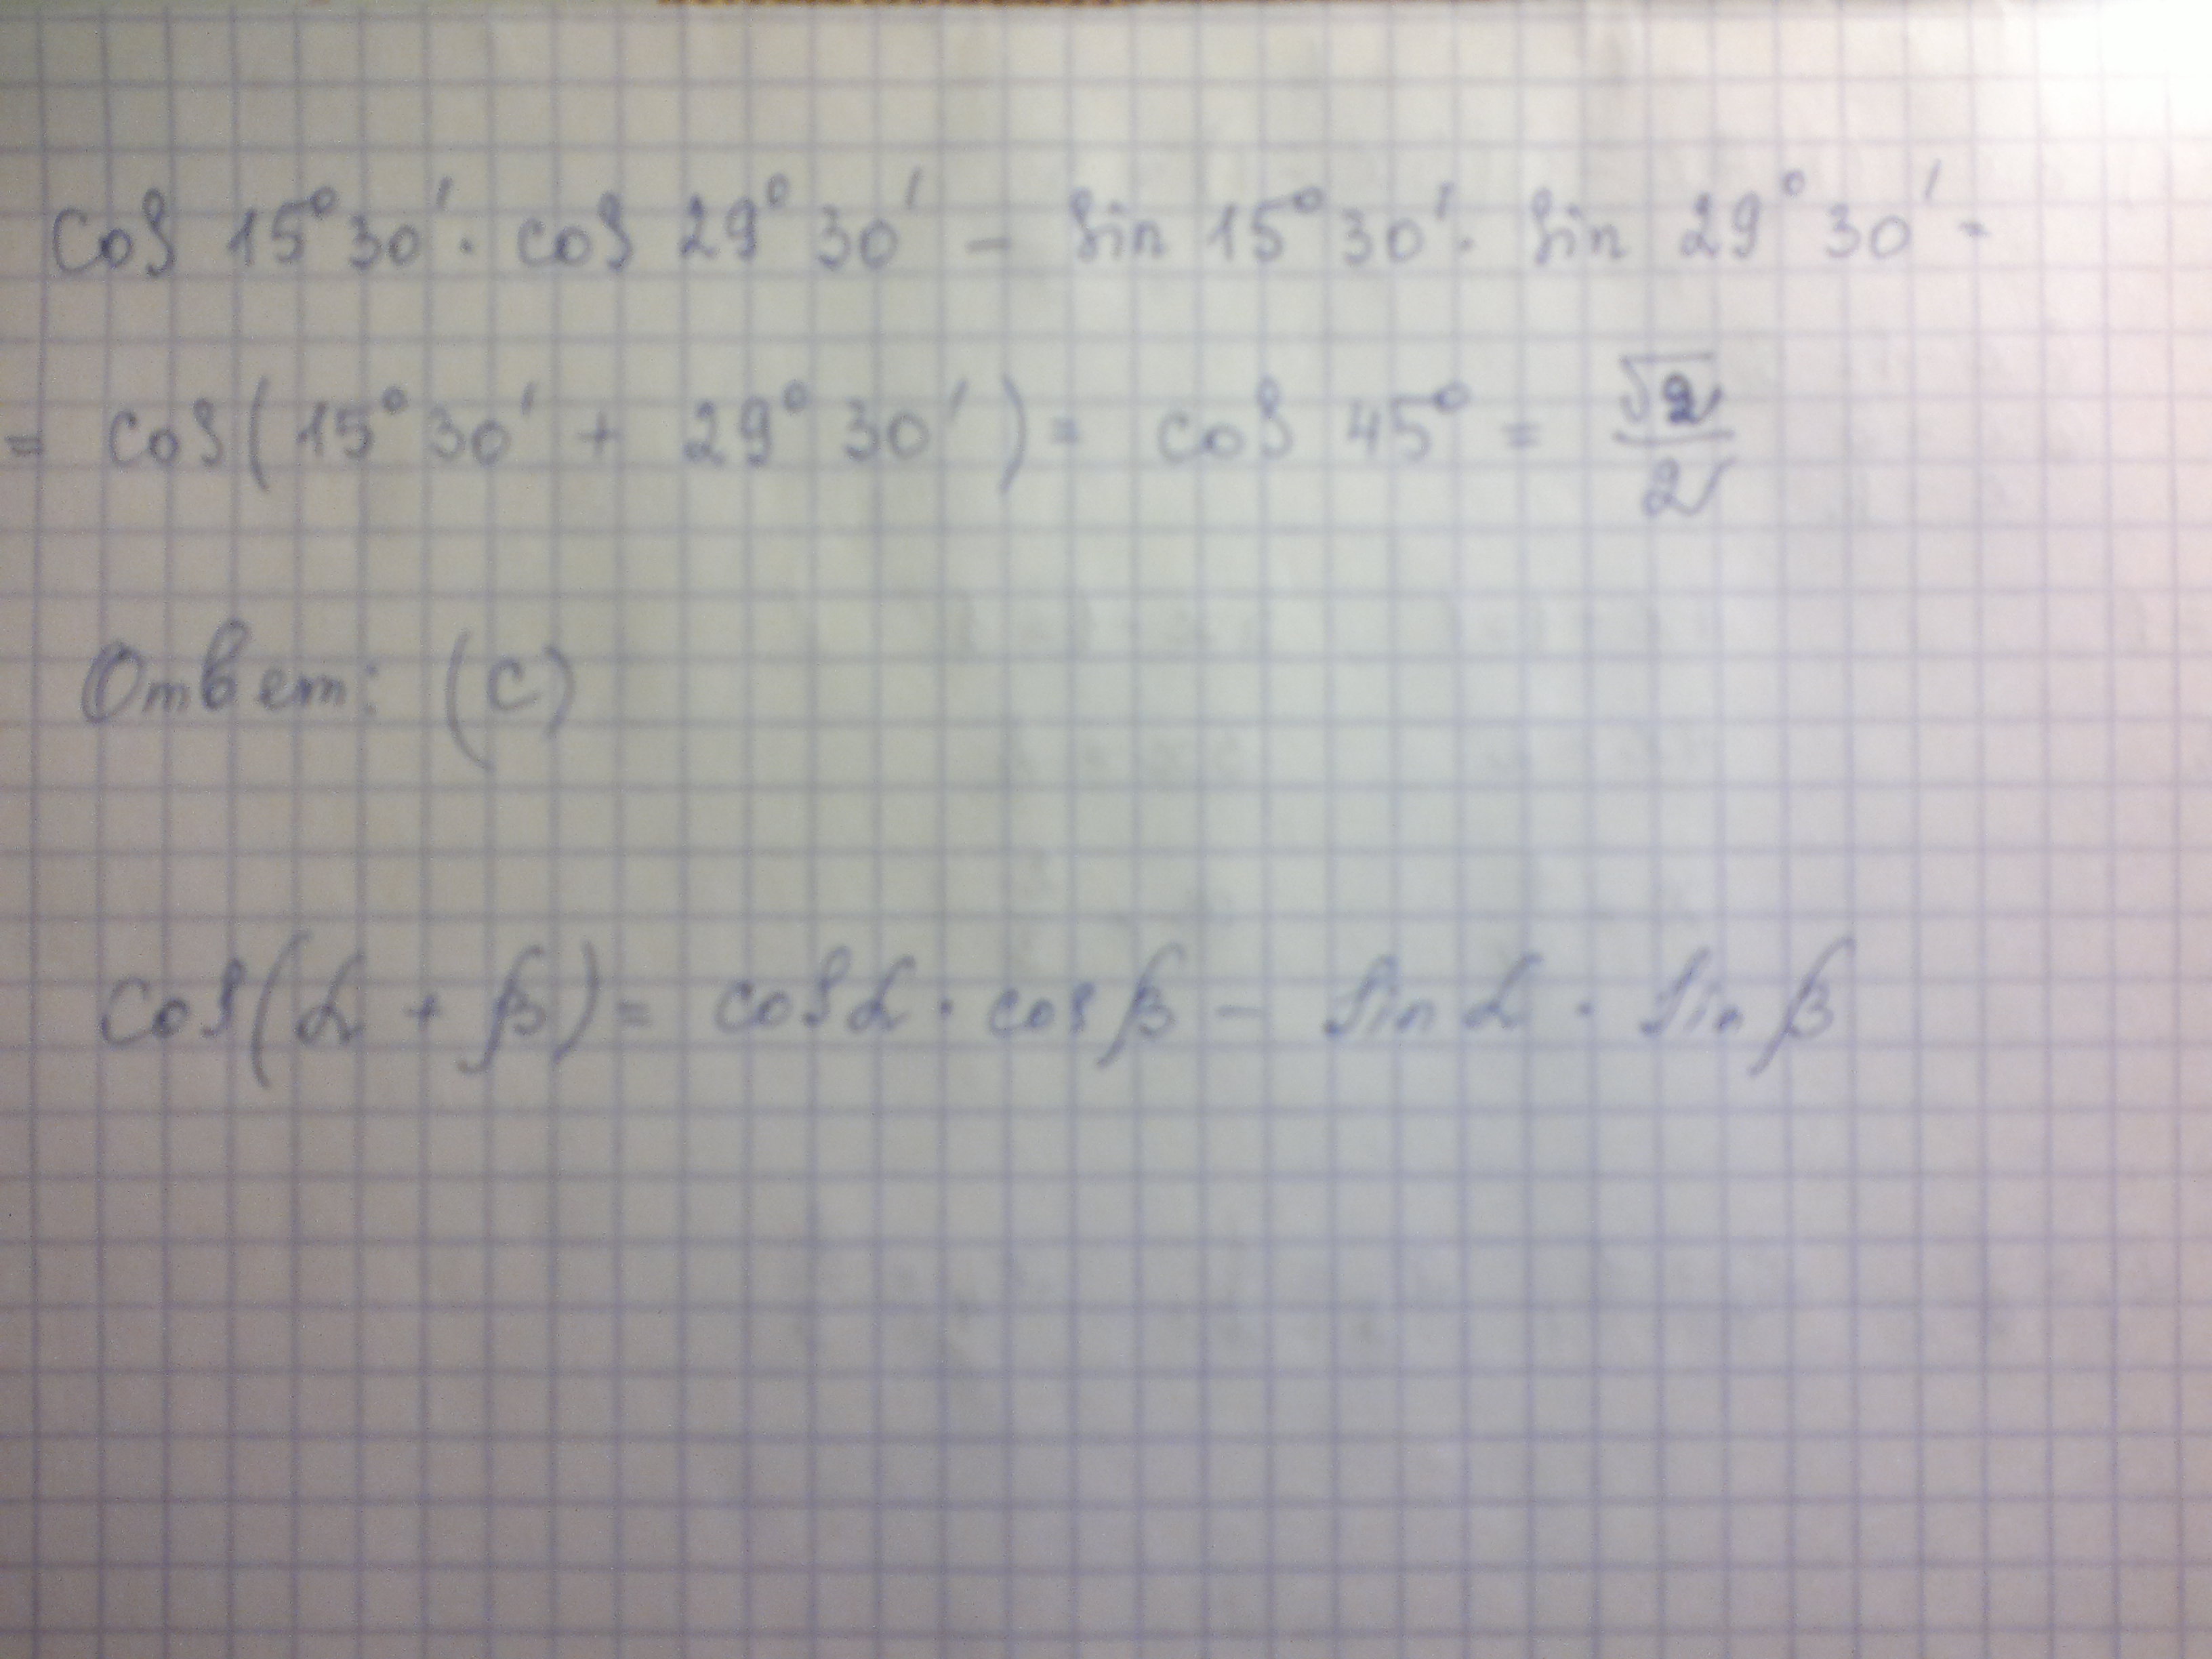 cos 15° 30' · cos 29° 30' - sin 15° 30' · sin 29° 30' =
= cos(15° 30' + 29° 30') = cos 45° = √2/2
Ответ: (C)
cos(α + β) = cos α · cos β - sin α · sin β